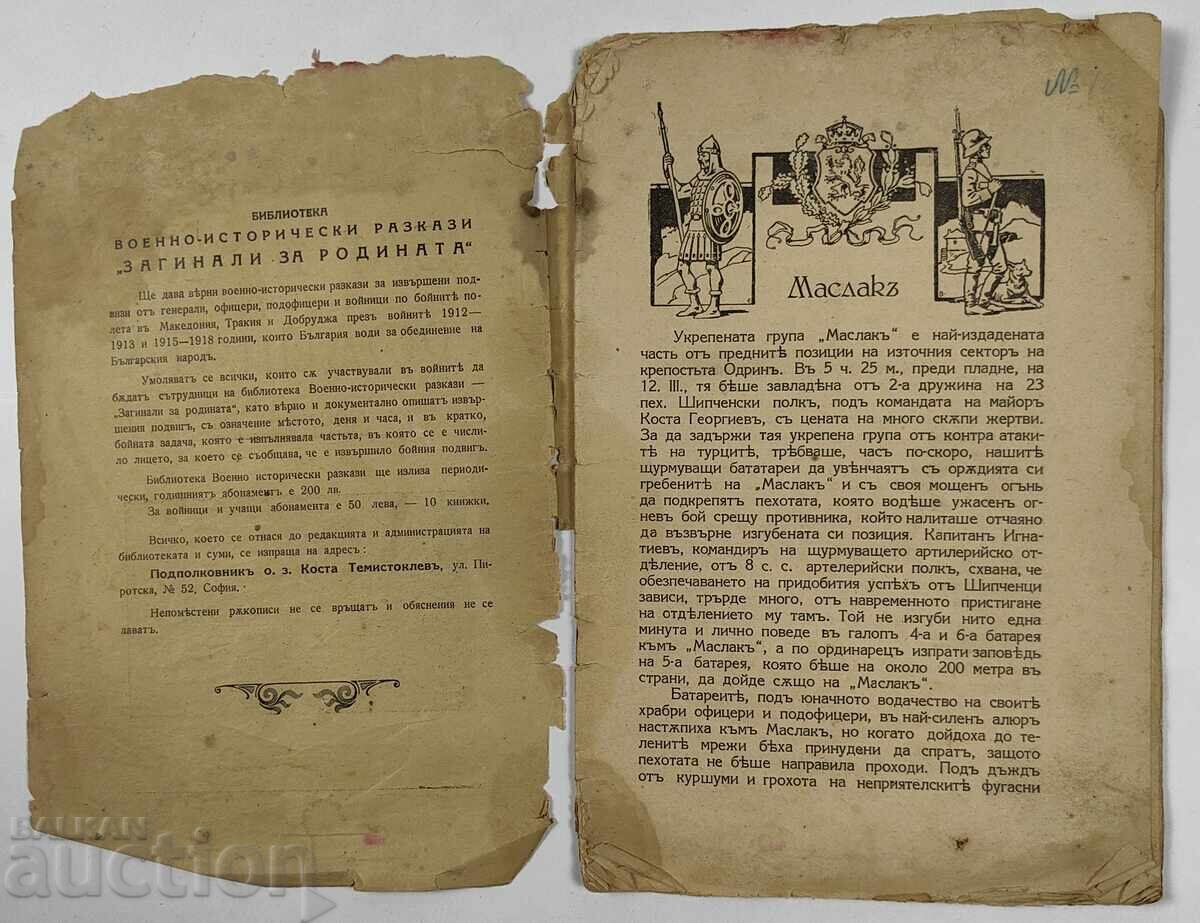 БИБЛИОТЕКА
ВОЕННО-ИСТОРИЧЕСКИ РАЗКАЗИ
„ЗАГИНАЛИ ЗА РОДИНАТА“
Ще дава вѣрни военно-исторически разкази за извършени под-
визи от генерали, офицери, подофицери и войници по бойнитѣ по-
лета въ Македония, Тракия и Добруджа презъ войнитѣ 1912—
1913 и 1915—1918 години, които България води за обединение на
Българския народъ.
Умоляватъ се всички, които сѫ участвували въ войнитѣ да
бѫдатъ сътрудници на библиотека Военно-исторически разкази —
„Загинали за родината“, като вѣрно и документално опишатъ извър-
шения подвигъ, съ означение мѣстото, деня и часа, и въ кратко,
бойната задача, която е изпълнявала частьта, въ която се е числи-
ло лицето, за което се съобщава, че е извършило бойния подвигъ.
Библиотека Военно исторически разкази ще излиза периоди-
чески, годишниятъ абонаментъ е 200 лв.
За войници и учащи абонамента е 50 лева, — 10 книжки.
Всичко, което се отнася до редакцията и администрацията на
библиотеката и суми, се изпраща на адресъ:
Подполковникъ о. з. Коста Темистоклевъ, ул. Пи-
ротска, № 52, София.
Непомѣстени рѫкописи не се връщатъ и обяснения не се
даватъ.
№
Маслакъ
Укрепената група „Маслакъ“ е най-издадената
часть отъ преднитѣ позиции на източния секторъ на
крепостьта Одринъ. Въ 5 ч. 25 м., преди пладне, на
12. III., тя бѣше завладѣна отъ 2-а дружина на 23
пех. Шипченски полкъ, подъ командата на майоръ
Коста Георгиевъ, съ цената на много скѫпи жертви.
За да задържи тая укрепена група отъ контра атаки-
тѣ на турцитѣ, трѣбваше, часъ по-скоро, нашитѣ
щурмуващи бататареи да увѣнчаятъ съ орѫдията си
гребенитѣ на „Маслакъ“ и съ своя мощенъ огънь
да подкрепятъ пехотата, която водѣше ужасенъ ог-
невъ бой срещу противника, който налиташе отчаяно
да възвърне изгубената си позиция. Капитанъ Игна-
тиевъ, командиръ на щурмуващето артилерийско от-
дѣление, отъ 8 с. с. артелерийски полкъ, схвана, че
обезпечаването на придобития успѣхъ отъ Шипченци
зависи, трърде много, отъ навременното пристигане
на отдѣлението му тамъ. Той не изгуби нито една
минута и лично поведе въ галопъ 4-а и 6-а батарея
къмъ „Маслакъ“, а по ординарецъ изпрати заповѣдь
на 5-а батарея, която бѣше на около 200 метра въ
страни, да дойде сѫщо на „Маслакъ“.
Батареитѣ, подъ юначното водачество на своитѣ
храбри офицери и подофицери, въ най-силенъ алюръ
настѫпиха къмъ Маслакъ, но когато дойдоха до те-
ленитѣ мрежи бѣха принудени да спратъ, защото
пехотата не бѣше направила проходи. Подъ дъждъ
отъ куршуми и грохота на неприятелскитѣ фугасни
BALKAN
auction